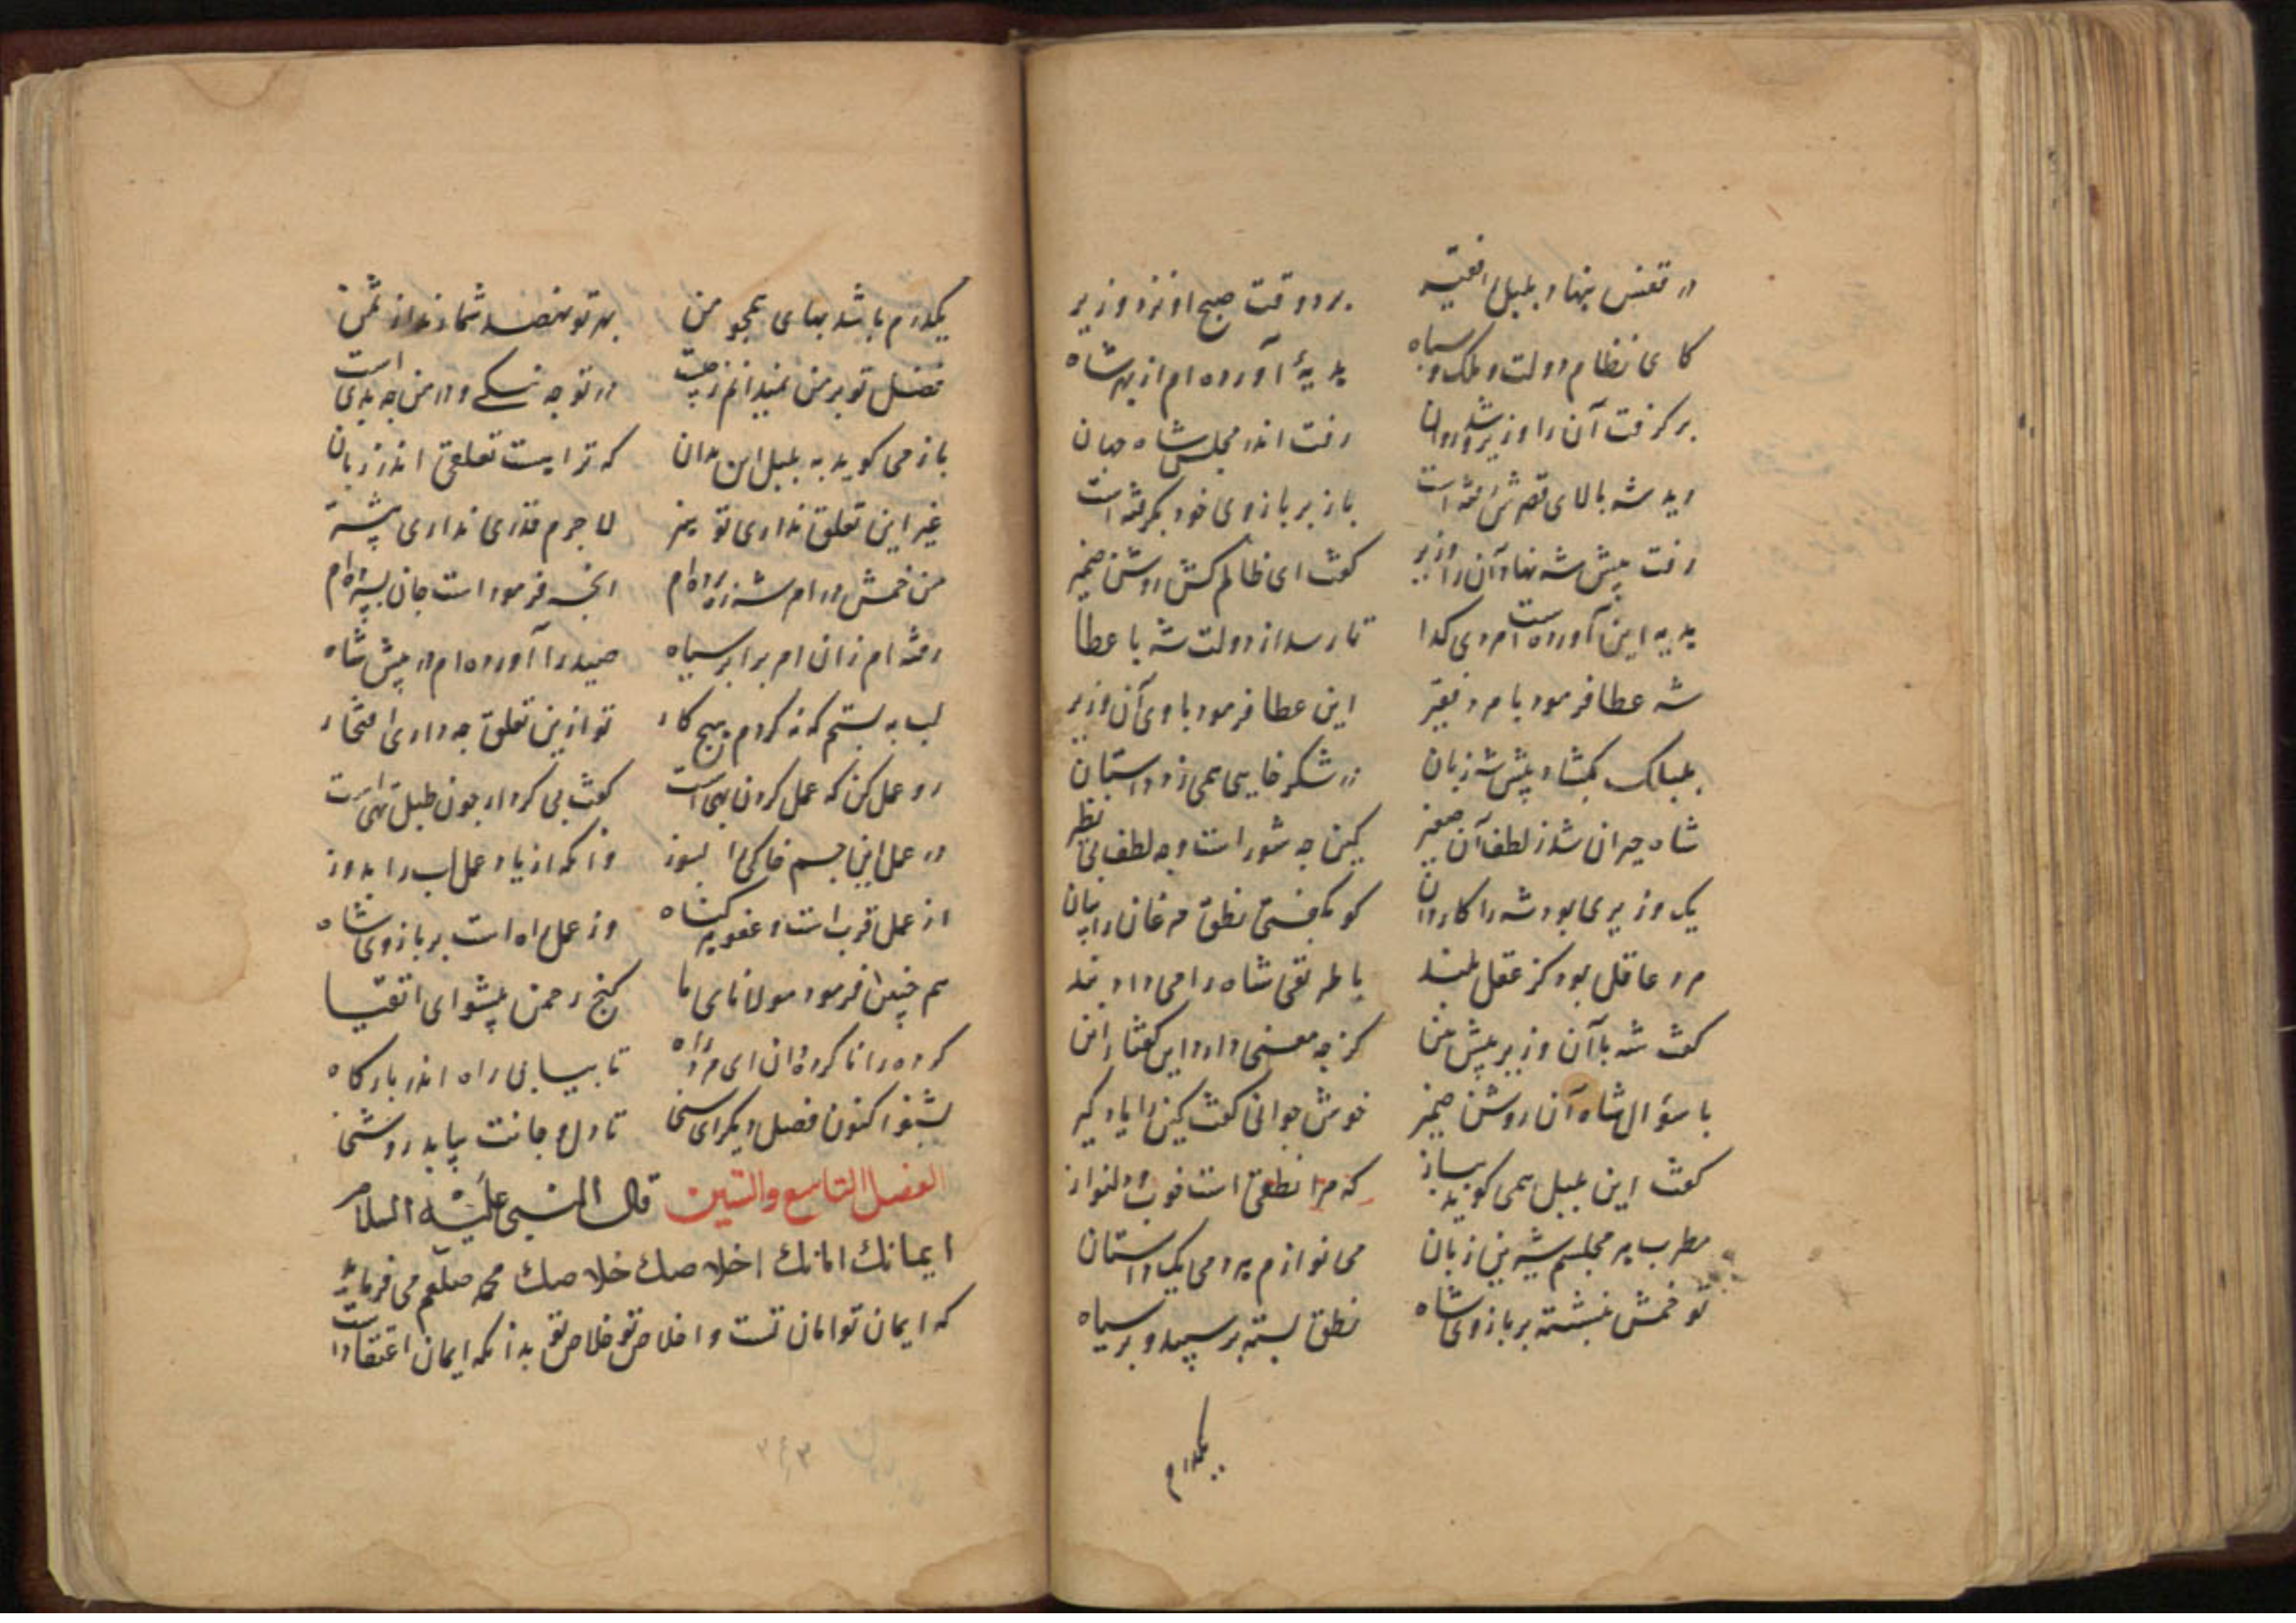 در قفس بنهاد بلبل فقیر برد وقت صبح او نزد وزیر
کای نظام دولت و ملک و سپاه هدیهٔ آورده‌ام از بهر شاه
بر گرفت آن را وزیر و شد روان رفت اندر مجلس شاه جهان
دید شه بالای قصرش است باز بر بازوی خود بگرفته است
رفت پیش شه نهاد آن را وزیر گفت ای ظالم‌کش روشن ضمیر
هدیه این آورده است مردی گدا تا رسد از دولت شه با عطا
شه عطا فرمود با مرد فقیر این عطا فرمود با وی آن وزیر
بلبلک بگشاد پیش شه زبان در شکر خایی همی زد داستان
شاه حیران شد ز لطف آن صفیر کین چه شور است و چه لطف بی نظیر
یک وزیری بود شه را کاردان کو بگفتی نطق مرغان را بیان
مرد عاقل بود کز عقل بلند با طریقی شاه را می‌داد پند
گفت شه با آن وزیر پیش بین کز چه معنی دارد این گفتار این
با سؤال شاه آن روشن ضمیر خوش جوابی گفت کین را یاد گیر
گفت این بلبل همی گوید بباز که مرا نطقی است خوب و دلنواز
مطرب هر مجلسم شیرین زبان می‌نوازم هر دمی یک داستان
تو خمش بنشسته بر بازوی شاه نطق بسته بر سپید و بر سیاه
یکدرم
یکدرم باشد بهای همچو من بهر تو پنصد شمارند از ثمن
فضل تو بر من نمیدانم ز چیست در تو چه نیکی و در من چه بدی است
باز می‌گوید به بلبل این بدان که ترا هست تعلقی اندر زبان
غیر این تعلق نداری تو هنر لاجرم قدری نداری بیشتر
من خمش در امر شه ره برده‌ام آنچه فرمود است جان بسپرده‌ام
رفته‌ام زان امر برابر سیاه صید را آورده‌ام در پیش شاه
لب به بستم که نکردم هیچ کار تو ازین تعلق چه داری افتخار
رو عمل کن که عمل کردن بهی است گفت بی کردار چون طبل تهی است
در عمل این جسم خاکی را بسوز وانکه از یاد عمل لب را بدوز
از عمل قرب است و عفو هر گناه وز عمل راه است بر بازوی شاه
هم چنین فرمود مولانای ما گنج رحمن پیشوای اتقیا
کرده را ناکرده دان ای مرد راه تا بیابی راه اندر بارگاه
بشنو اکنون فصل دیگر ای سنی تا دل و جانت بیابد روشنی
الفصل التاسع والستین قال النبی علیه السلام
ایمانك امانك اخلاصك خلاصك محمد صلعم می فرماید
که ایمان تو امان تست و اخلاص تو خلاص تو بدانکه ایمان اعتقاد است
۲۴۳